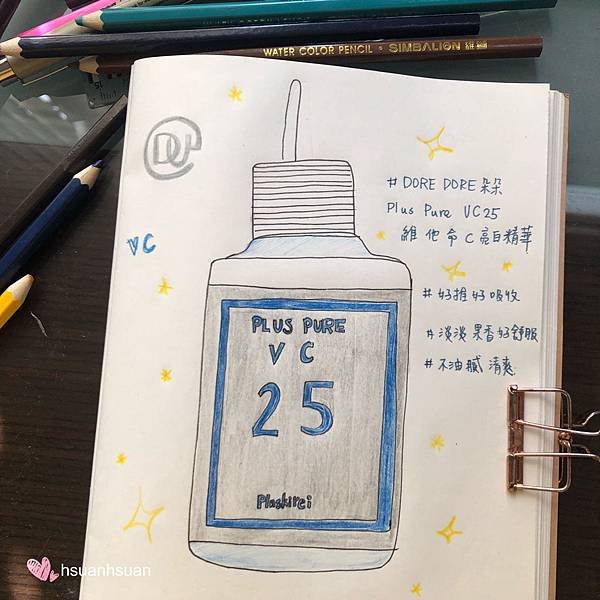 WATER COLOR PENCIL • SIMBALION 雄獅
DU
VC
# DORE DORE 朵朵
Plus Pure VC25
維他命C亮白精華
# 好推好吸收
# 淡淡果香好舒服
# 不油膩清爽
PLUS PURE
VC
25
Pluskirei
hsuanhsuan